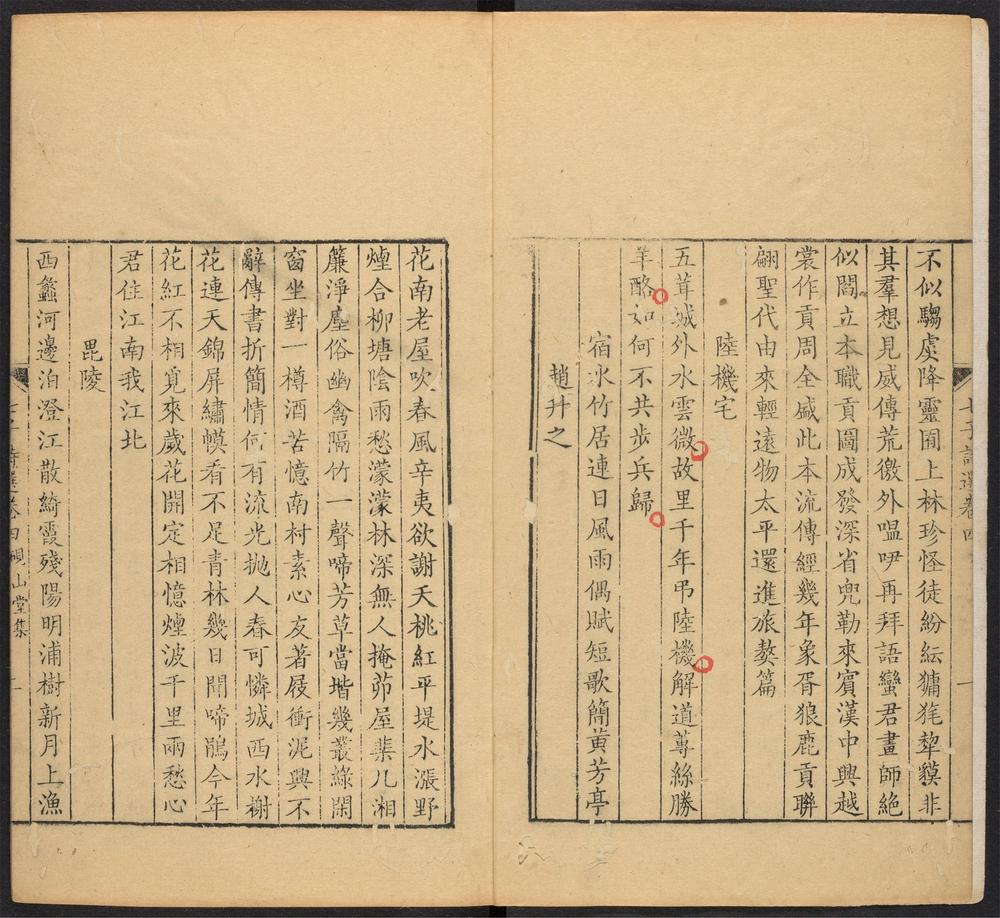 不似騶虞降靈囿上林珍怪徒紛紜猵狵犂貘非
其羣想見威傳荒徼外嗢咿再拜語蠻君畫師絕
似閻立本職貢圖成發深省兜勒來賓漢中興越
裳作貢周全盛此本流傳經幾年象胥狼鹿貢聯
翩聖代由來輕遠物太平還進旅獒篇
陸機宅
五茸城外水雲微故里千年弔陸機解道蓴絲勝
羊酪如何不共步兵歸
宿水竹居連日風雨偶賦短歌簡黃芳亭
趙升之
花南老屋吹春風辛夷欲謝夭桃紅平堤水漲野
煙合柳塘陰雨愁濛濛林深無人掩茆屋棐几湘
簾淨塵俗幽禽隔竹一聲啼芳草當堦幾叢綠閑
窗坐對一樽酒苦憶南村素心友著屐衝泥興不
辭傳書折簡情何有流光拋人春可憐城西水榭
花連天錦屏繡幙看不足青林幾日聞啼鵑今年
花紅不相覓來歲花開定相憶煙波千里兩愁心
君住江南我江北
毘陵
西蠡河邊泊澄江散綺霞殘陽明浦樹新月上漁
七子詩選卷四
七子詩選卷四硯山堂集